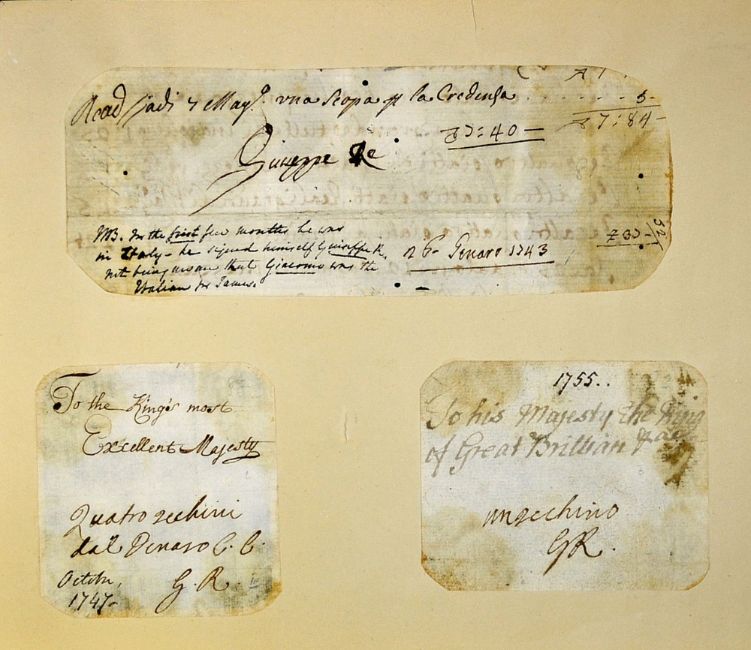 adi 7 Mag. una Scopa p la Credenza . . . . . . . 5-
Z3:40-
Z7:84-
Giuseppe Re
NB. In the first few months he was
in Italy - he signed himself Giuseppe R.
not being aware that Giacomo was the
Italian for James.
Genaro 1743
To the King's most
Excellent Majesty
Quatro zechini
dal Denaro C. C.
Octobr,
1747-
G R
1755..
To his Majesty the King
of Great Brittian &ca
un zechino
G R.